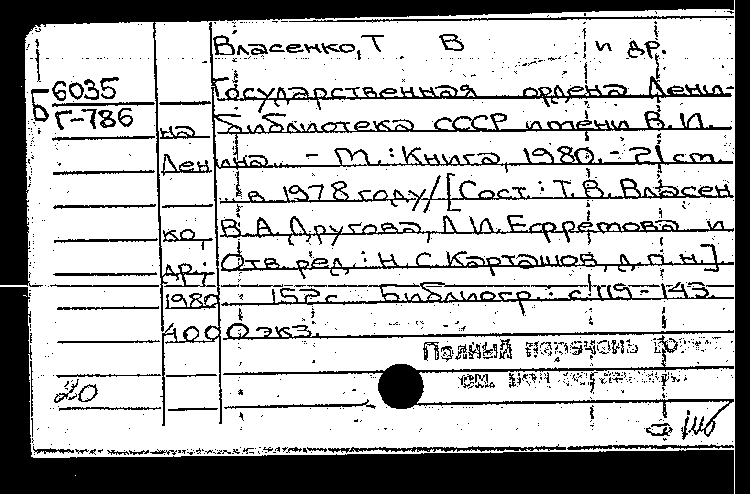 Власенко, Т В и др.
Б 6035 Государственная ордена Лени-
Г-786 на Библиотека СССР имени В. И.
Ленина. - М.: Книга, 1980. - 21 см.
...в 1978 году/[Сост.: Т. В. Власен
ко, В. А. Другова, Л. И. Ефремова и
др.; Отв. ред.: Н. С. Карташов, д. п. н.]
1980. 152 с Библиогр.: с 119-143.
4000 экз.
Полный перечень
см. под
20